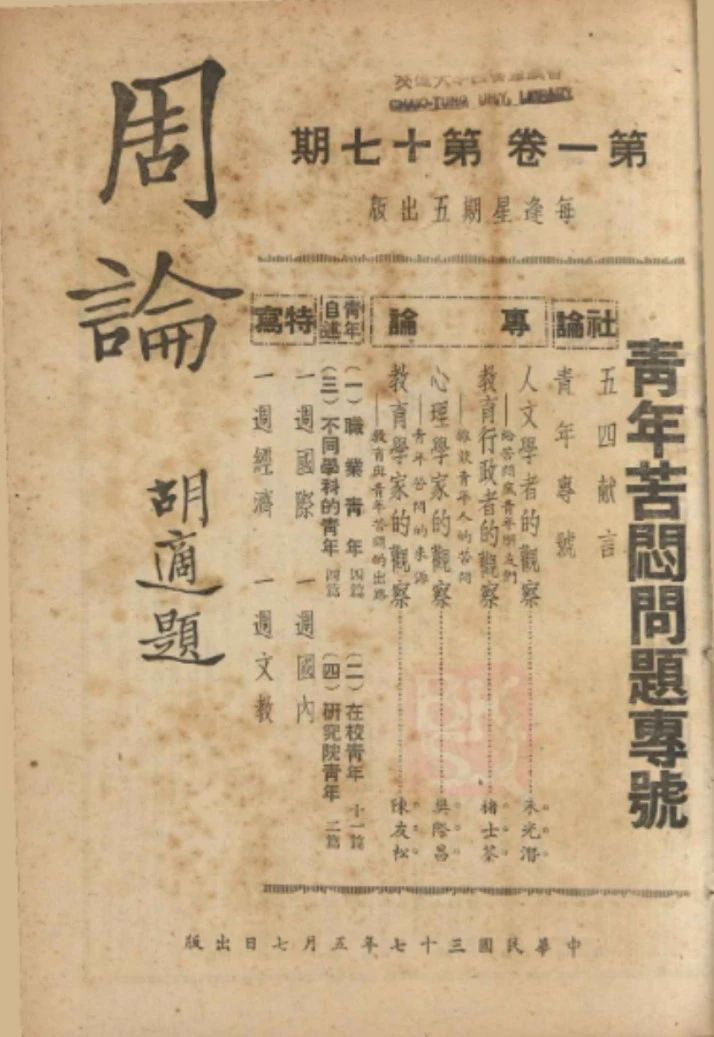 周論
胡適題
CHIAO-TUNG UNIV. LIBRARY
第一卷 第十七期
每逢星期五出版
青年苦悶問題專號
社論
五四献言
青年專號
專論
人文學者的觀察……朱光潛
——給苦悶底青年朋友們
教育行政者的觀察……楮士荃
——雜談青年人的苦悶
心理學家的觀察……樊際昌
——青年苦悶的來源
教育學家的觀察……陳友松
——教育與青年苦悶的出路
青年自述
(一)職業青年 四篇
(二)在校青年 十一篇
(三)不同學科的青年 四篇
(四)研究院青年 二篇
特寫
一週國際
一週國內
一週經濟
一週文教
中華民國三十七年五月七日出版